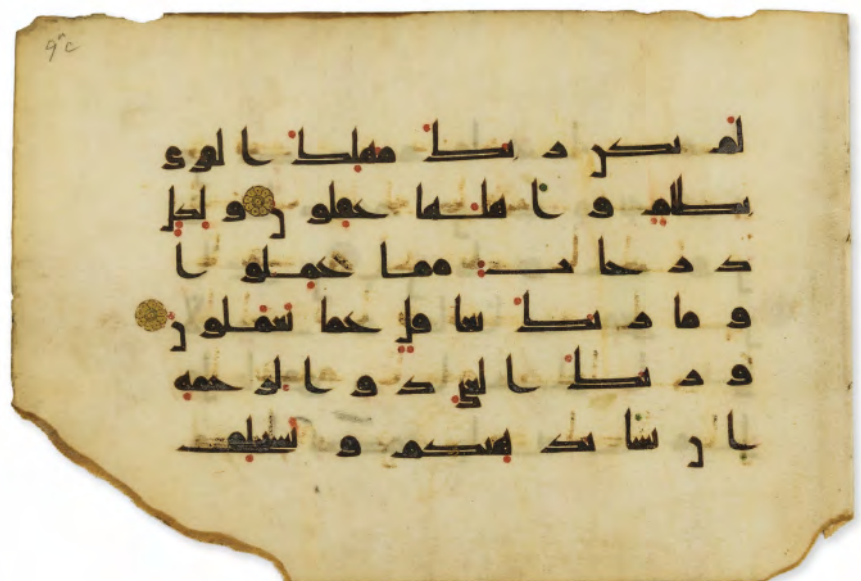 لم يكن ربك مهلك القرى
بظلم و اهلها غفلون و لكل
درجت مما عملوا
و ما ربك بغفل عما يعملون
و ربك الغنى ذو الرحمه
ان يشا يذهبكم و يستخلف